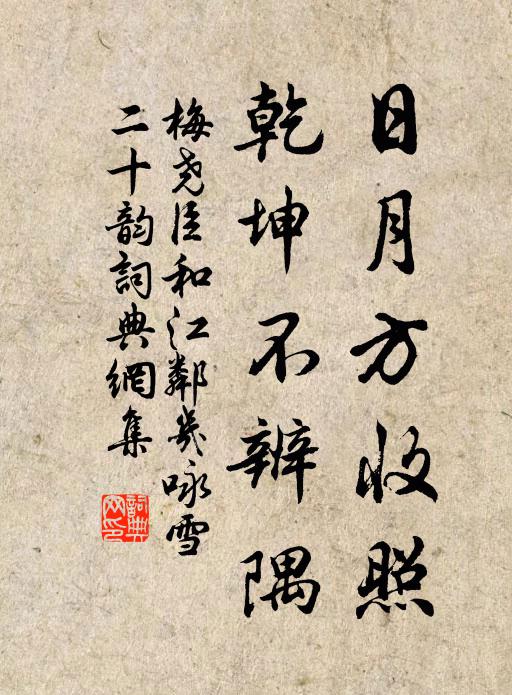 日月方收照
乾坤不辨隅
梅尧臣和江鄰幾咏雪
二十韵詞典網集
詞典
网印